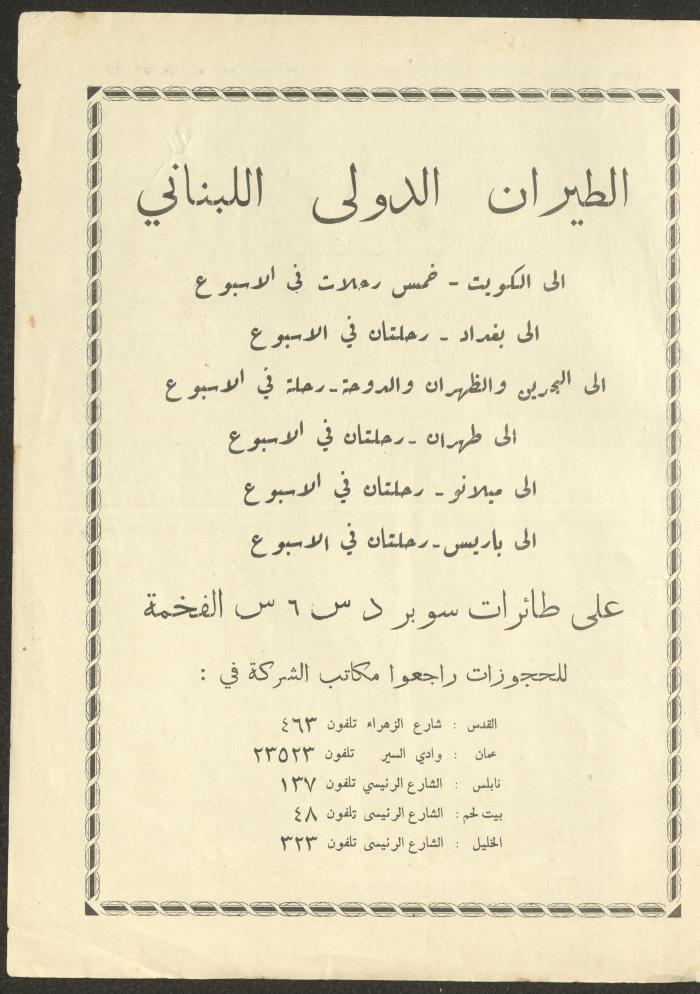 الطيران الدولى اللبناني
الى الكويت - خمس رحلات في الاسبوع
الى بغداد - رحلتان في الاسبوع
الى البحرين والظهران والدوحة - رحلة في الاسبوع
الى طهران - رحلتان في الاسبوع
الى ميلانو - رحلتان في الاسبوع
الى باريس - رحلتان في الاسبوع
على طائرات سوبر د س ٦ س الفخمة
للحجوزات راجعوا مكاتب الشركة في :
القدس : شارع الزهراء تلفون ٤٦٣
عمان : وادي السير تلفون ٢٣٥٢٣
نابلس : الشارع الرئيسي تلفون ١٣٧
بيت لحم : الشارع الرئيسى تلفون ٤٨
الخليل : الشارع الرئيسى تلفون ٣٢٣